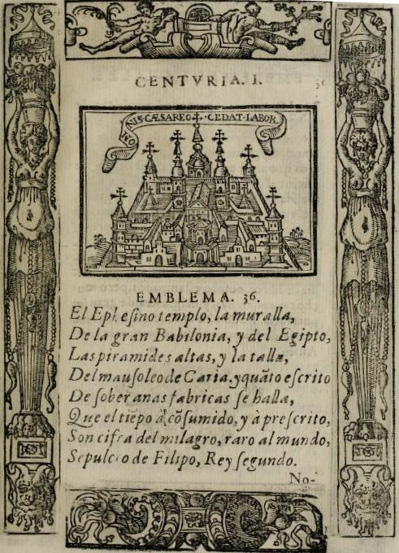 CENTVRIA. I.
OMNIS·CÆSAREO·CEDAT·LABOR
EMBLEMA. 36.
El Ephesino templo, la muralla,
De la gran Babilonia, y del Egipto,
Las piramides altas, y la talla,
Del mausoleo de Caria, y quãto escrito
De soberanas fabricas se halla,
Que el tiẽpo à cõsumido, y à prescrito,
Son cifra del milagro, raro al mundo,
Sepulcro de Filipo, Rey segundo.
No-